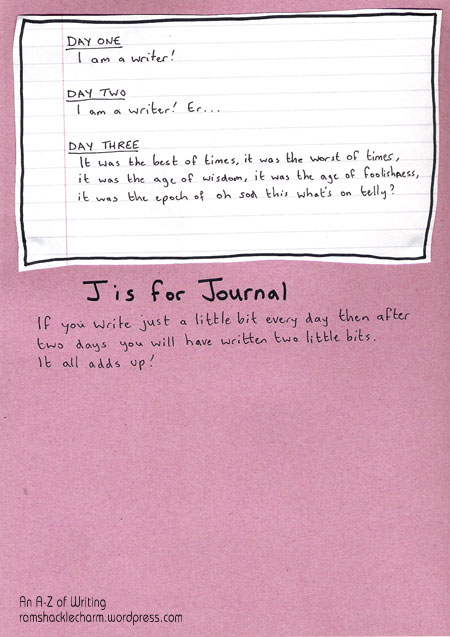 DAY ONE
I am a writer!
DAY TWO
I am a writer! Er...
DAY THREE
It was the best of times, it was the worst of times,
it was the age of wisdom, it was the age of foolishness,
it was the epoch of oh sod this what's on telly?
J is for Journal
If you write just a little bit every day then after
two days you will have written two little bits.
It all adds up!
An A-Z of Writing
ramshacklecharm.wordpress.com